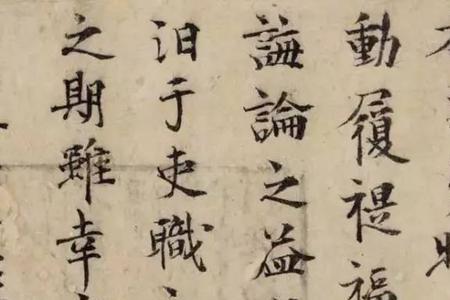 動履禔福
講論之益
汩于吏職
之期雖幸